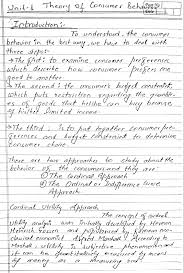 Unit-6 Theory of Consumer Behavior
Introduction:-
To understand the consumer
behavior in the best way, we have to deal with
three steps:
→ The first: to examine consumer preference
which describe how consumer prefers one
good to another.
→ The second: the consumer's budget constraint
which puts restriction regarding the quantiti-
es of goods that he/she can buy because
of his/her limited income.
→ The third: is to put together consumer pre-
ferences and budget constraint to determine
consumer choice.
There are two approaches to study about the
behavior of the consumer and they are:
① The Cardinal Approach
② The Ordinal or Indifference Curve
Approach
Cardinal Utility Approach
The concept of cardinal
utility analysis was initially developed by German
Heinrich Gossen and
economist Alfred Marshall. According to
Marshall, utility is subjective phenomenon and
it can be quantitatively measured by means
of money as a measuring rod